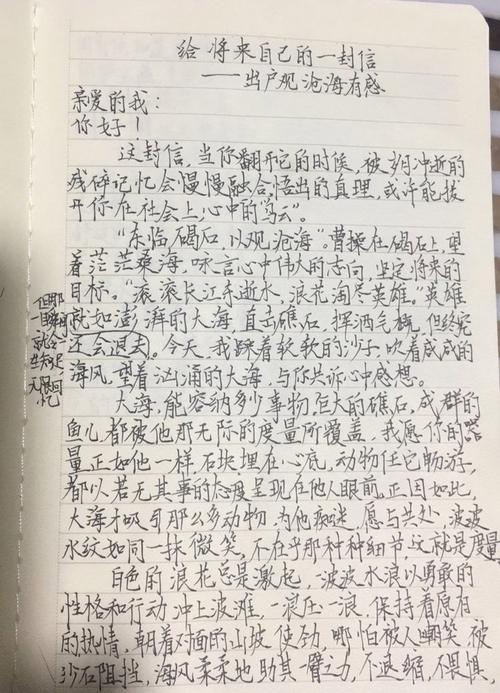 给将来自己的一封信
——出户观沧海有感
亲爱的我:
你好!
这封信,当你翻开它的时候,被岁月冲逝的
残碎记忆会慢慢融合悟出的真理,或许能拨
开你在社会上,心中的“乌云”。
“东临碣石,以观沧海”。曹操在碣石上,望
着茫茫桑海,咏言心中伟大的志向,坚定将来的
目标。“滚滚长江东逝水,浪花淘尽英雄。”英雄
就如澎湃的大海,直击礁石,挥洒气概,但终究
还会退去。今天,我踩着软软的沙子,吹着咸咸的
海风,望着汹涌的大海,与你共诉心中感想。
大海,能容纳多少事物,巨大的礁石,成群的
鱼儿都被他那无际的度量所覆盖,我愿你的器
量正如他一样,石块埋在心底,动物任它畅游,
都以若无其事的态度呈现在他人眼前,正因如此,
大海才吸引那么多动物,为他痴迷,愿与共处,波波
水纹如同一抹微笑,不在乎那种种细节,这就是度量
白色的浪花总是激起,一波波水浪以勇敢的
性格和行动冲上波滩,一浪压一浪,保持着原有
的热情,朝着对面的山坡使劲,哪怕被人嘲笑,被
沙石阻挡,海风柔柔地助其一臂之力,不退缩,不畏惧,
但那
一目
就会
无限回
忆